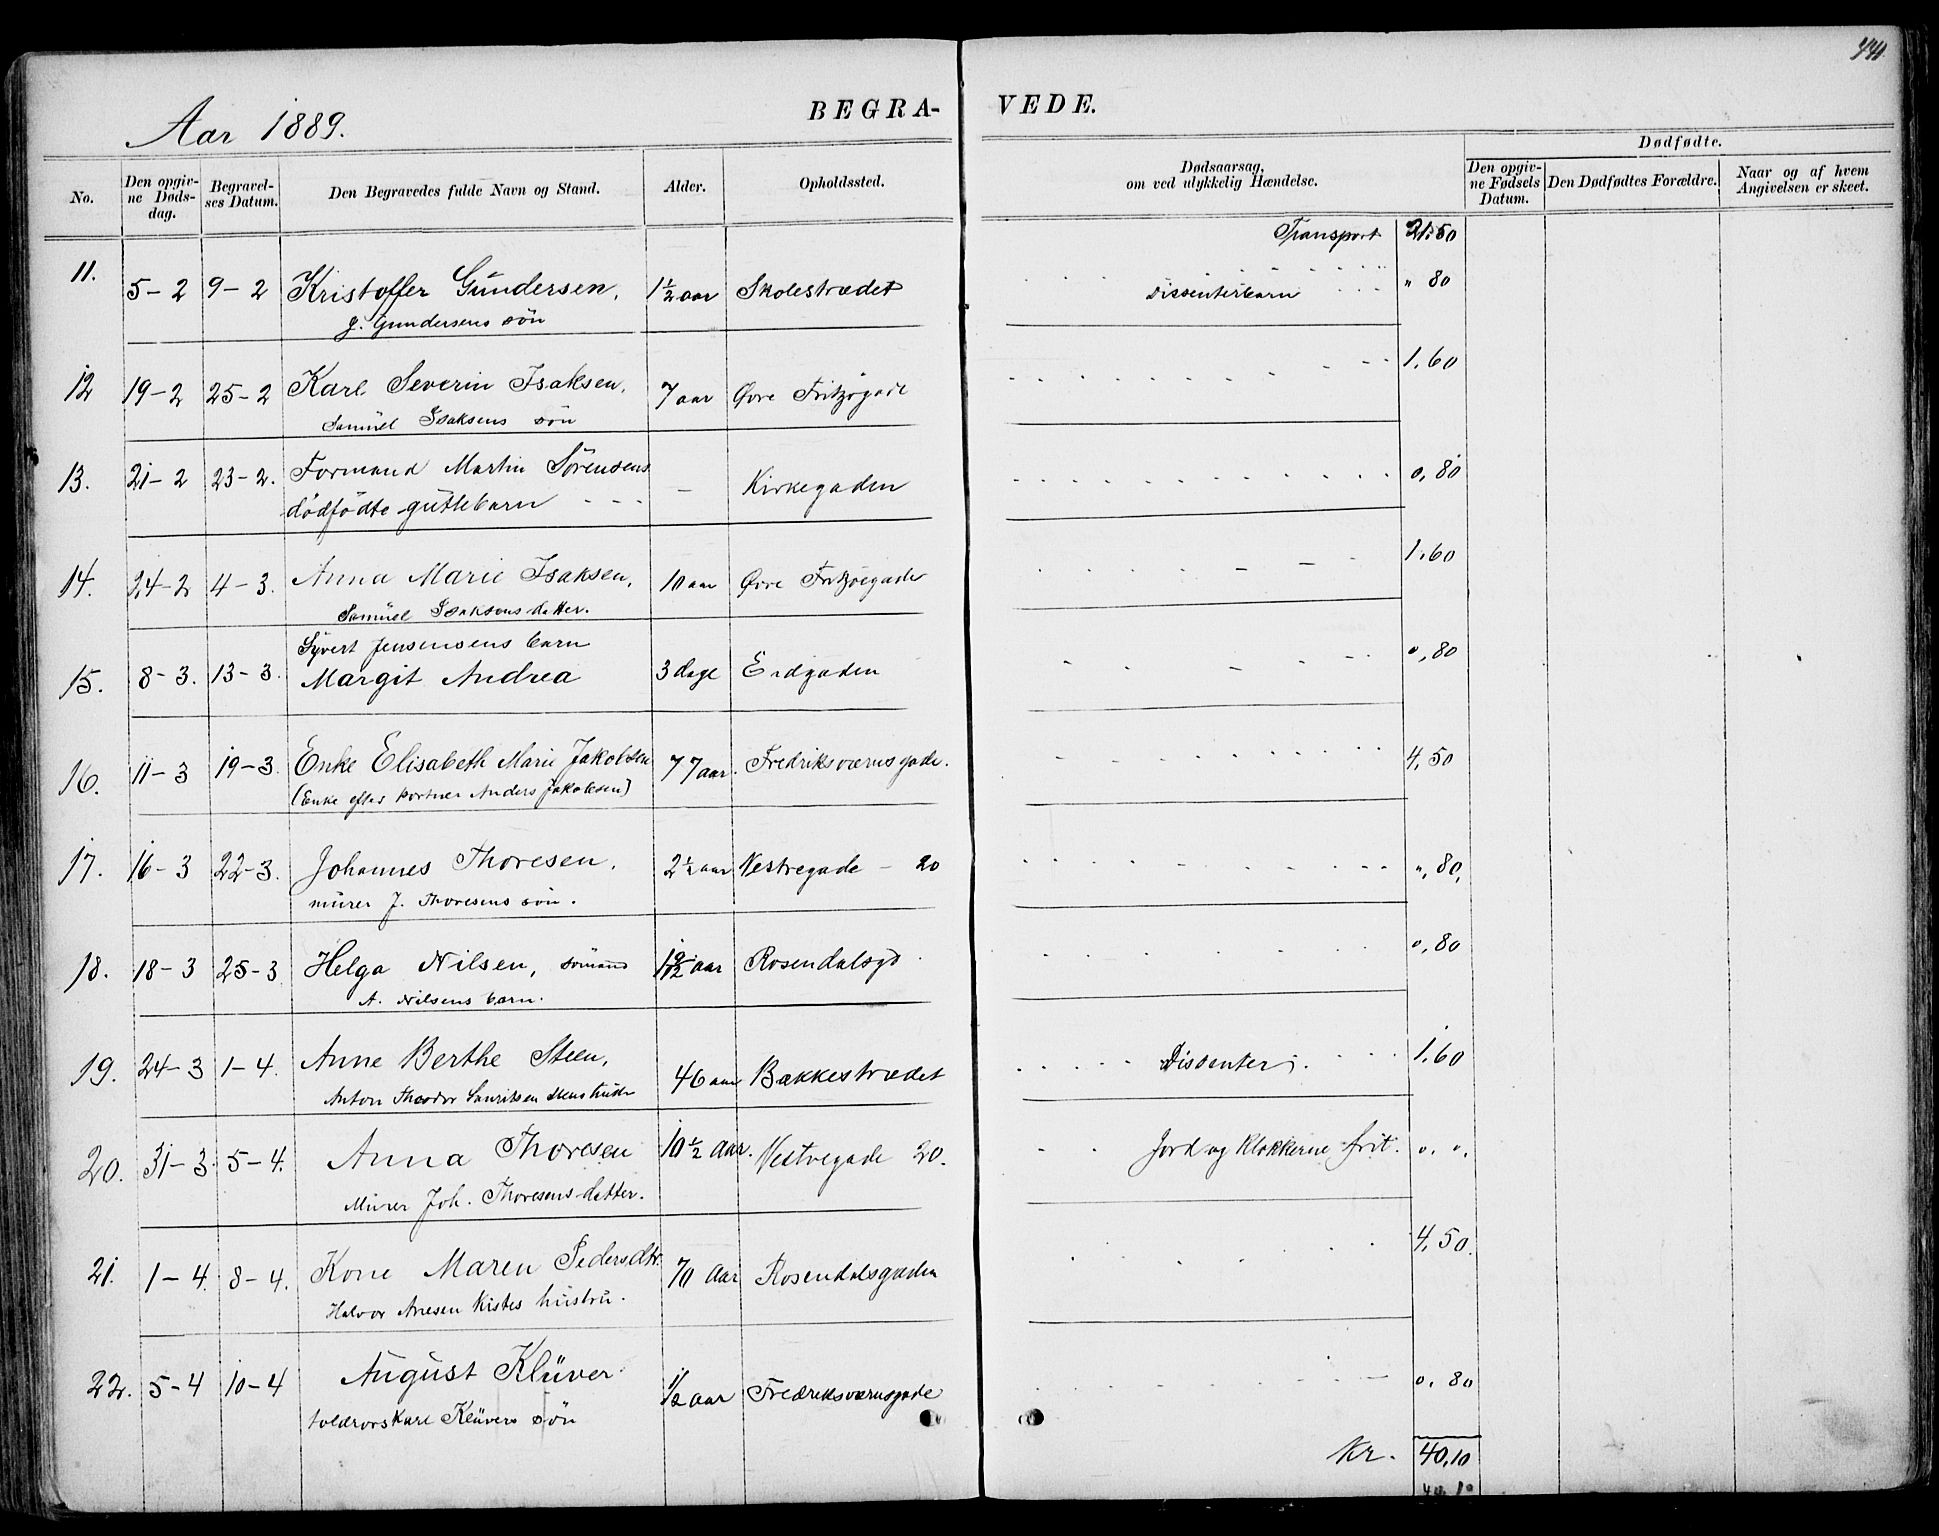 441
Aar 1889.
BEGRA-
VEDE.
No.
Den opgiv-
ne Døds-
dag.
Begravel-
ses Datum.
Den Begravedes fulde Navn og Stand.
Alder.
Opholdssted.
Dødsaarsag,
om ved ulykkelig Hændelse.
Dødfødte.
Den opgiv-
ne Fødsels
Datum.
Den Dødfødtes Forældre.
Naar og af hvem
Angivelsen er skeet.
Transport 21.50
11. 5-2 9-2 Kristoffer Gundersen, 1½ aar Skolestrædet Dissenterbarn " 80
J. Gundersens søn
12 19-2 25-2 Karl Severin Isaksen, 7 aar Øvre Fritzøgade 1.60
Samuel Isaksens søn
13. 21-2 23-2. Formand Martin Sørensens - Kirkegaden 0,80
dødfødte guttebarn
14. 24-2 4-3. Anna Marie Isaksen, 10 aar Øvre Fritzøegade 1.60
Samuel Isaksens datter.
Syvert Jensensens barn
15. 8-3. 13-3. Margit Andrea 3 dage Eidgaden 0,80
16. 11-3 19-3. Enke Elisabeth Marie Jakobsen 77 aar. Fredriksværnsgade. 4,50
(Enke efter portner Anders Jakobsen)
17. 16-3 22-3. Johannes Thoresen, 2½ aar Vestregade - 20 ",80,
murer J. Thoresens søn.
18. 18-3 25-3 Helga Nilsen, sømand aar Rosendalsgd. 0,80
A. Nilsens barn.
19. 24-3 1-4. Anne Berthe Steen, 46 aar Bakkestrædet Dissenter 1.60
Anton Theodor Lauritsen Steens hustru
20. 31-3. 5-4. Anna Thoresen 10½ Aar. Vestregade 20. Jord og Klokkerne frit. 0. 0.
Murer Joh. Thoresens datter.
21. 1-4. 8-4. Kone Maren Pedersdtr. 70 Aar Rosendalsgaden 4,50.
Halvor Arnesen Kistes hustru.
22. 5-4 10-4 August Klüver ½ aar Fredriksværnsgade 0.80
toldrorskarl Klüvers søn
Kr. 40,10